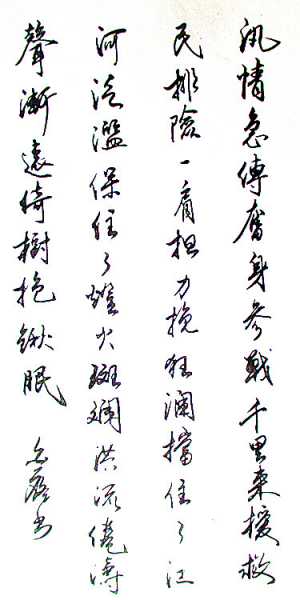 汛情急傳奮身參戰千里來援救
民排險一肩担力挽狂瀾擋住了江
河泛濫保住了燈火斑斕洪流濤
聲漸遠倚樹抱鍬眠